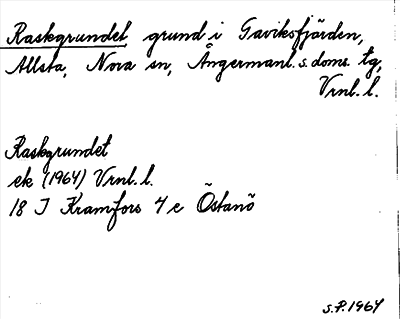 Raskgrundet grund i Gaviksfjärden,
Allsta, Nora sn, Ångermanl. s. doms. tg,
Vrnl. l.
Raskgrundet
ek (1964) Vrnl. l.
18 I Kramfors 4 e Östanö
S.P. 1964